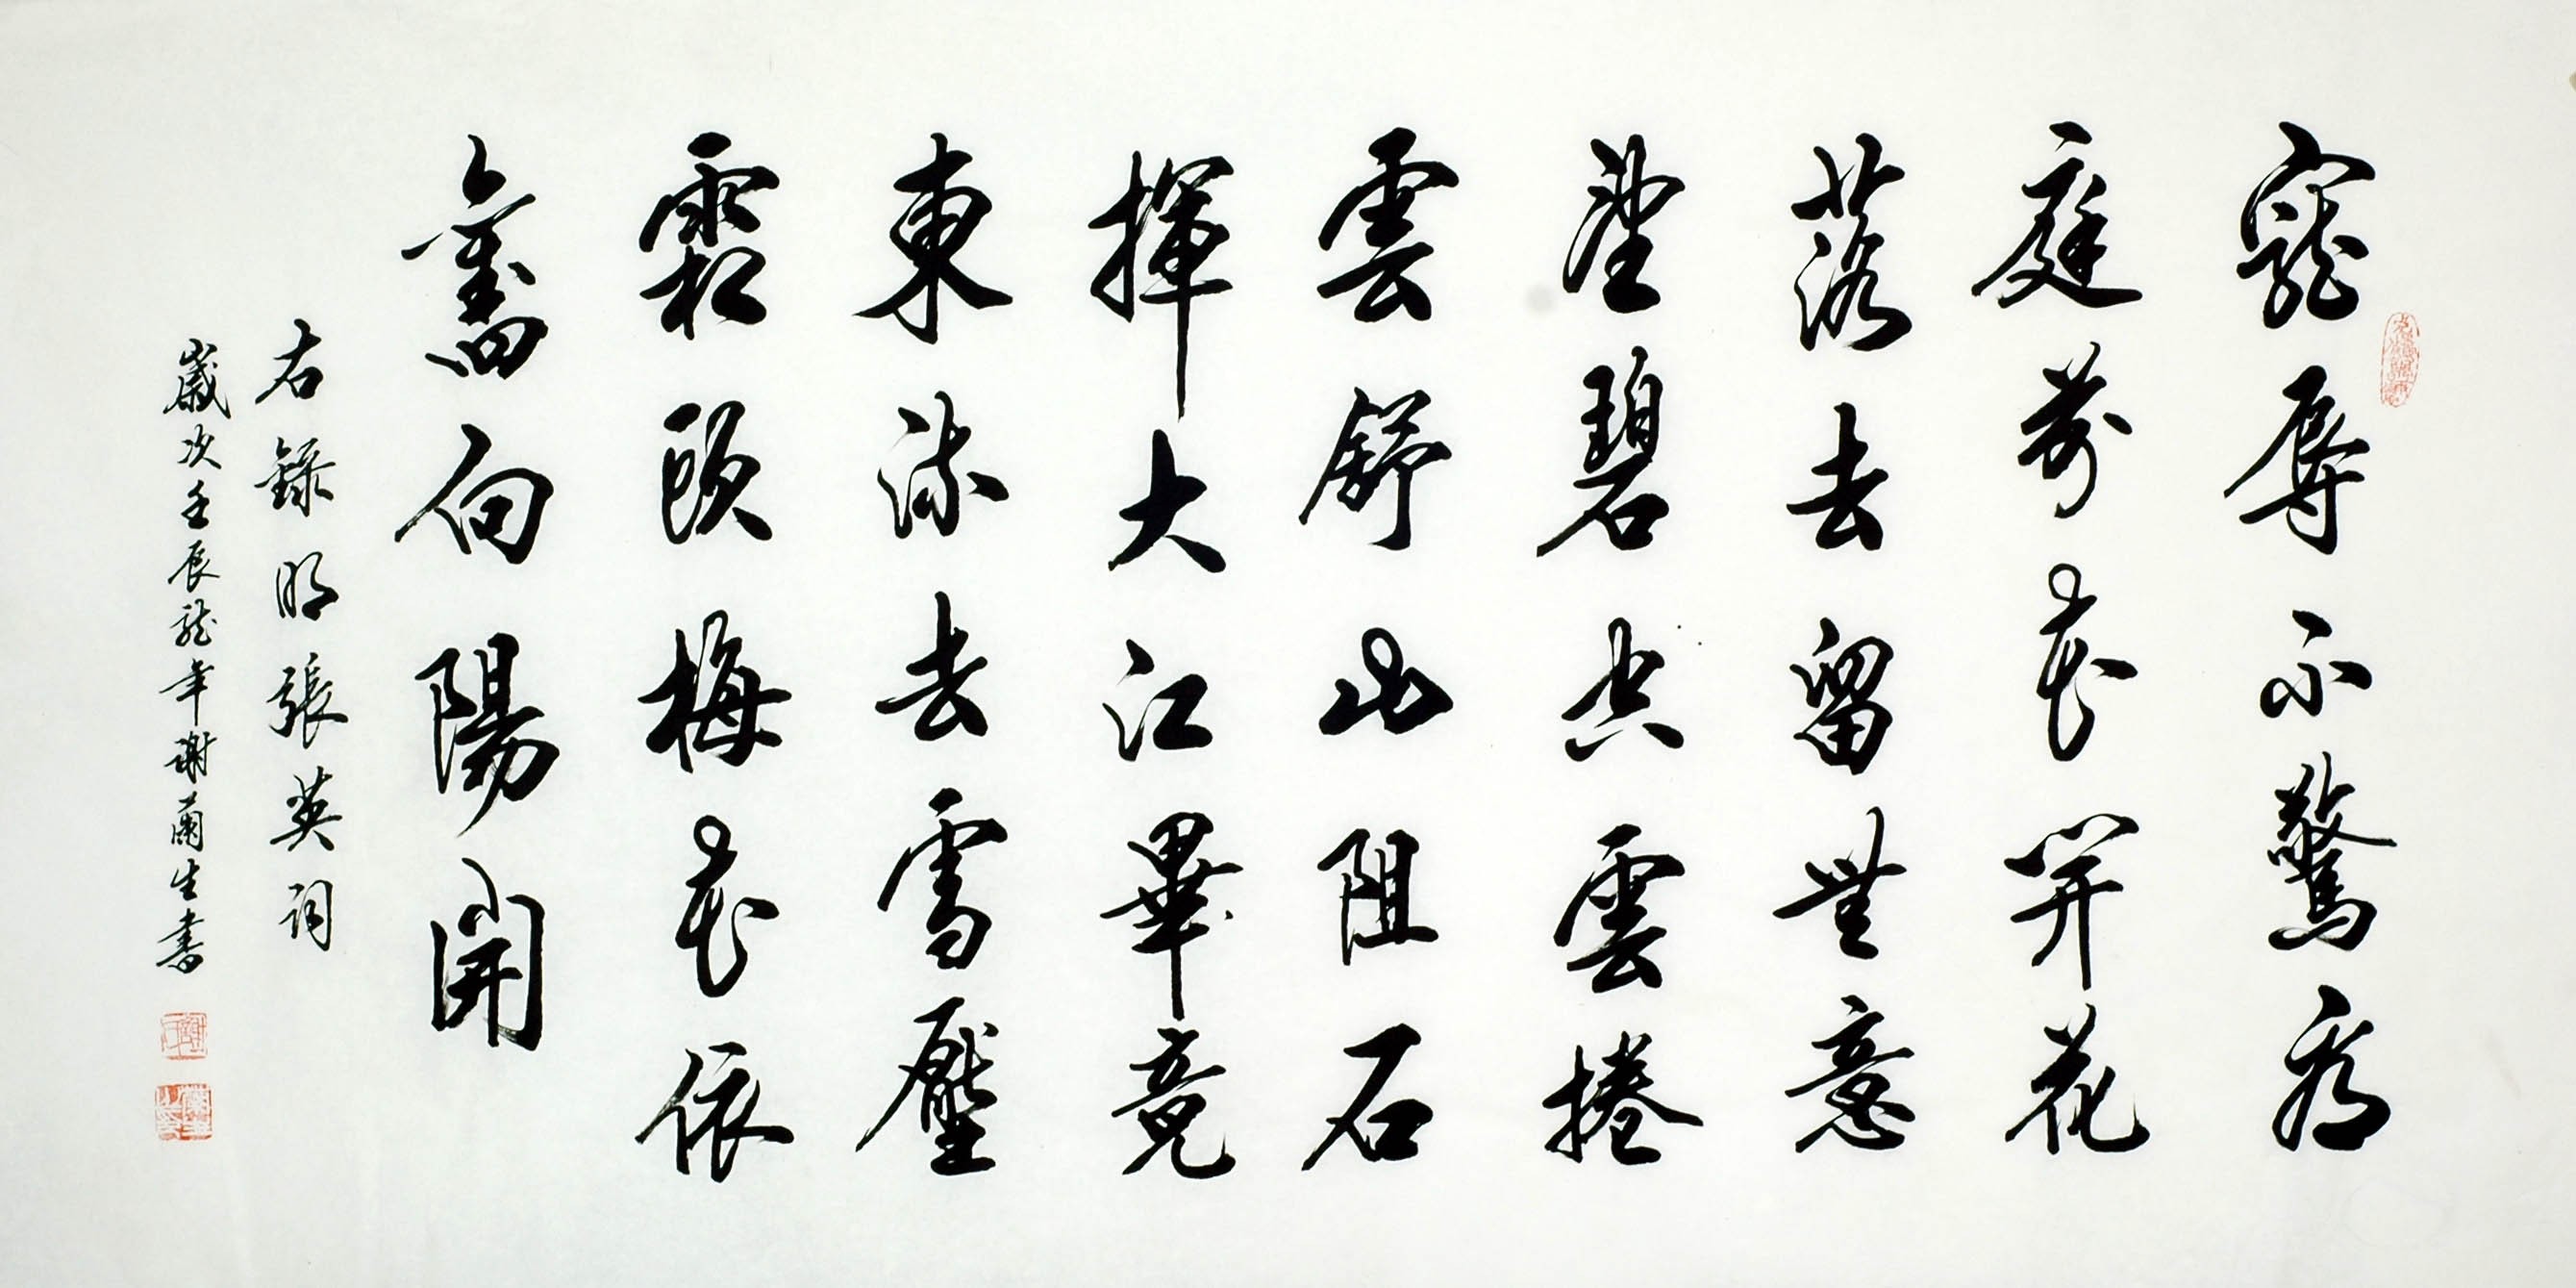 寵辱不驚看
庭前花開花
落去留無意
望碧空雲捲
雲舒山阻石
揮大江畢竟
東流去雪壓
霜欺梅花依
舊向陽開
右錄明張英詞
歲次壬辰龍年謝蘭生書